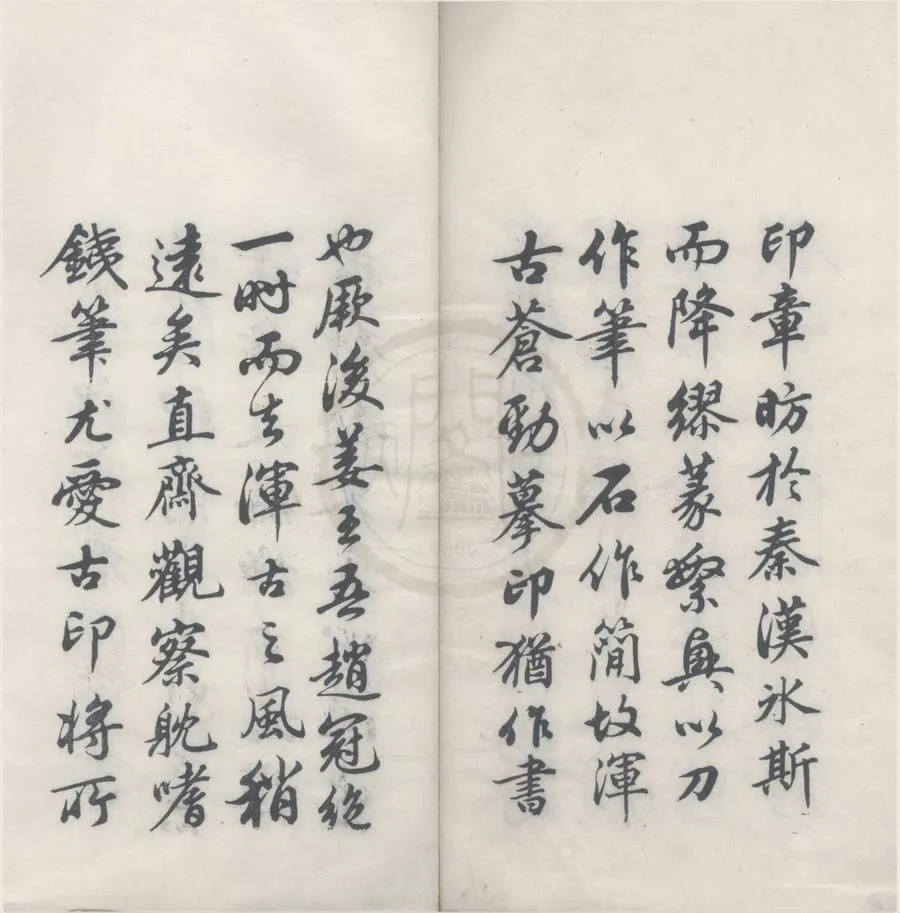 印章昉於秦漢氷斯
而降繆篆繁興以刀
作筆以石作簡故渾
古蒼勁摹印猶作書
也厥後姜王吾趙冠絶
一時而去渾古之風稍
遠矣直齋觀察躭嗜
鐵筆尤愛古印將所